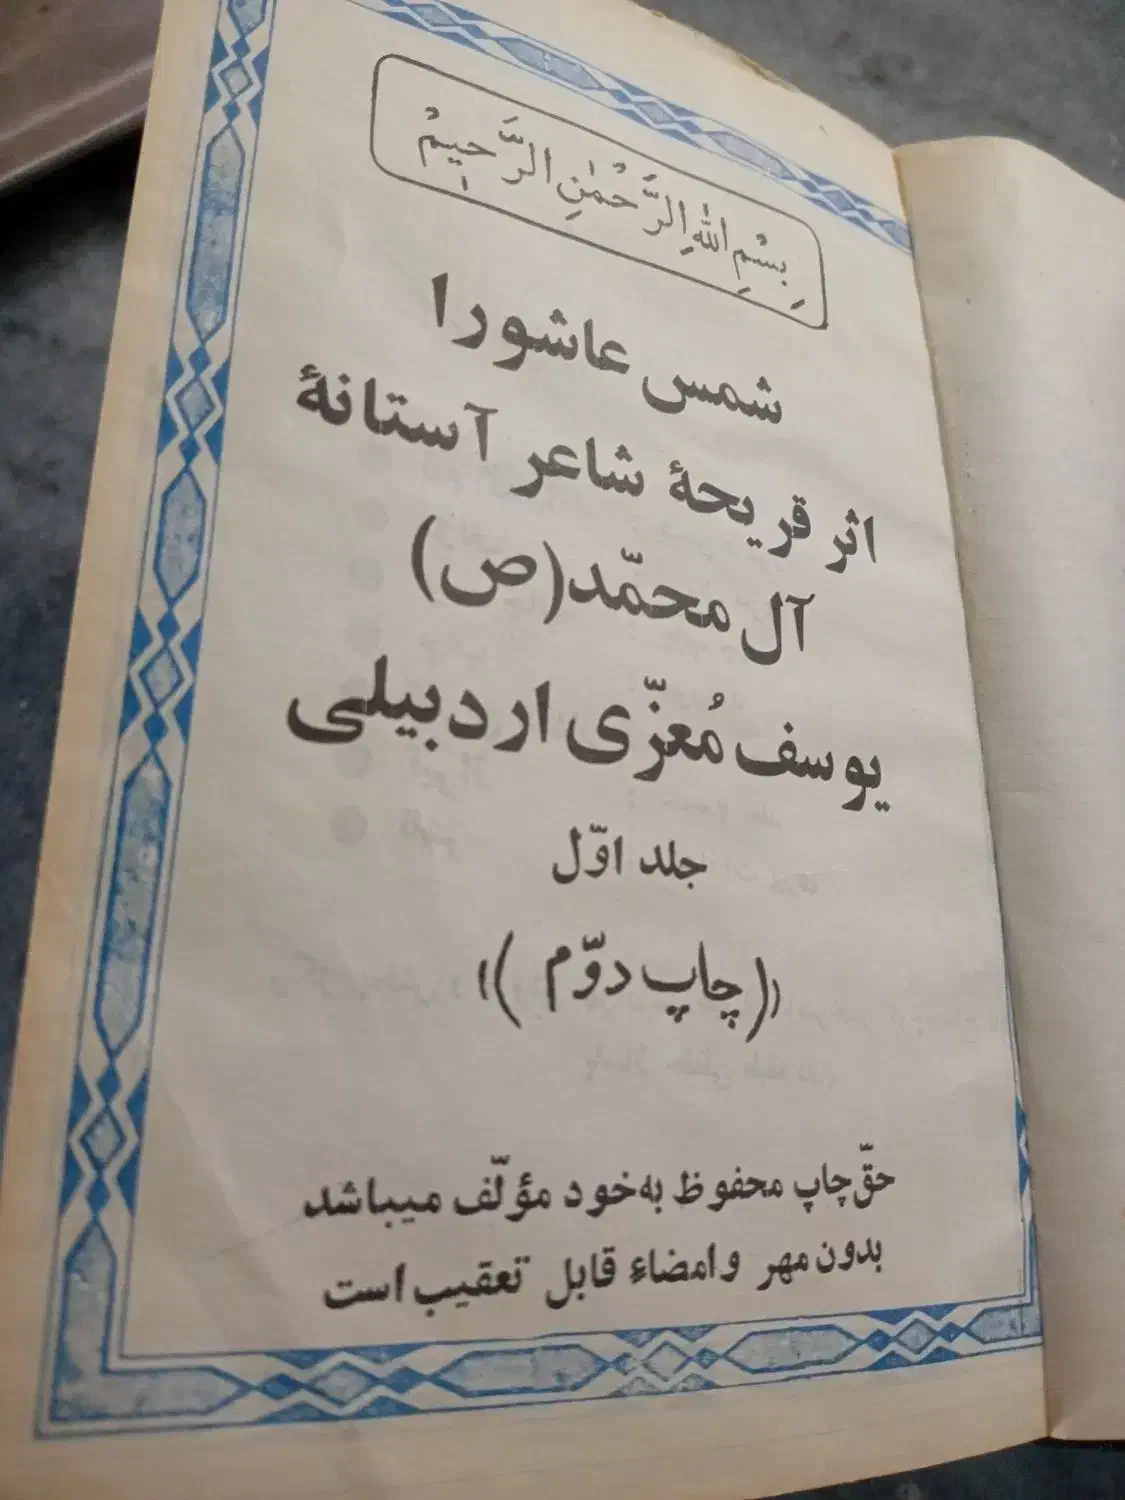 بِسْمِ اللّٰهِ الرَّحْمٰنِ الرَّحیمْ
شمس عاشورا
اثر قریحهٔ شاعر آستانهٔ
آل محمّد(ص)
یوسف مُعزّی اردبیلی
جلد اوّل
((چاپ دوّم))
حقّ چاپ محفوظ به‌خود مؤلّف میباشد
بدون مهر وامضاء قابل تعقیب است